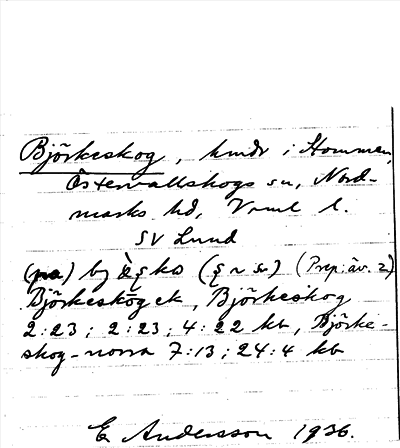 Björkeskog, hmdr i Hommen,
Östervallskogs sn, Nord-
marks hd, Vrml l.
SV Lund
(på) bj ko (Prep: äv. i)
Björkeskog ek, Björkeskog
2:23; 2:23; 4:22 kb, Björke-
skog-norra 7:13; 24:4 kb
E Andersson 1936.